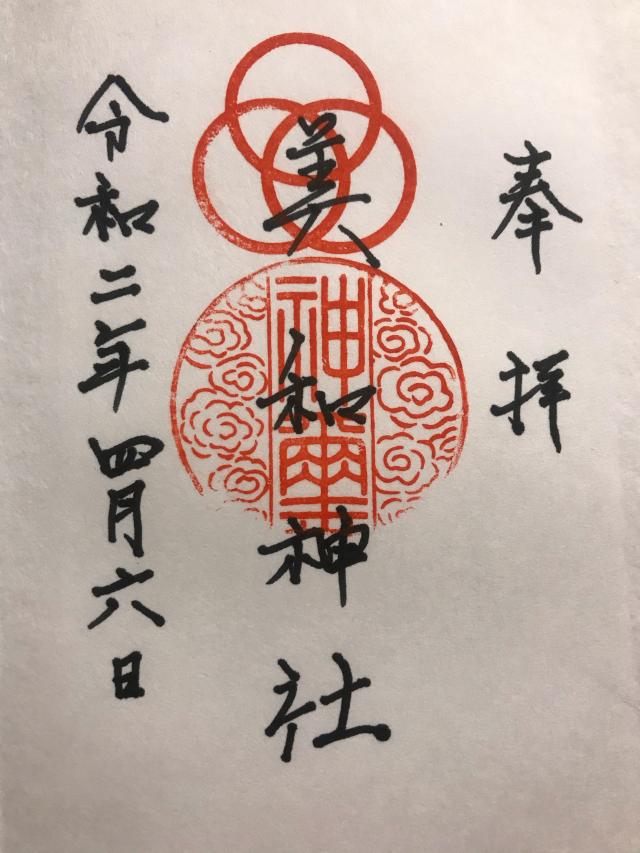 奉拝
美和神社
令和二年四月六日